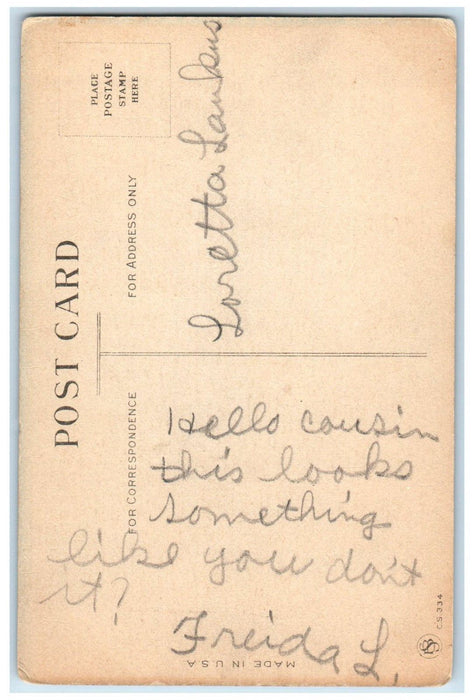 PLACE
POSTAGE
STAMP
HERE
POST CARD
FOR ADDRESS ONLY
Loretta
FOR CORRESPONDENCE
Hello cousin
this looks
something
like you don't
it?
Freida L.
MADE IN U.S.A
C.S. 334